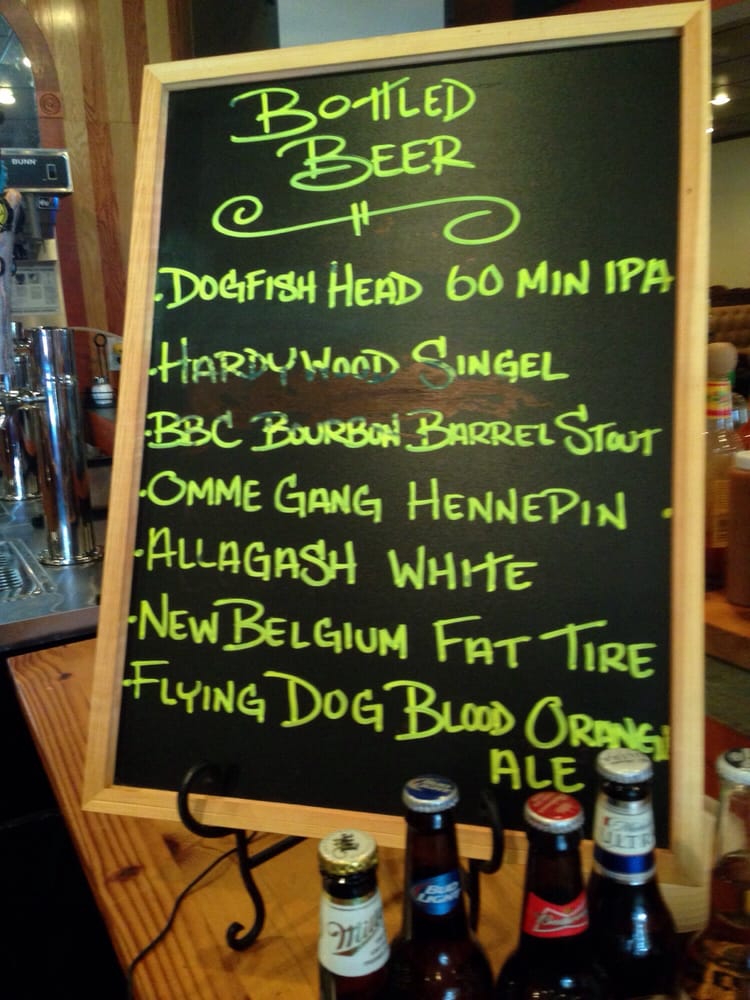 BOTTLED
BEER
·DOGFISH HEAD 60 MIN IPA
·HARDYWOOD SINGEL
·BBC BOURBON BARREL STOUT
·OMME GANG HENNEPIN ·
·ALLAGASH WHITE
·NEW BELGIUM FAT TIRE
·FLYING DOG BLOOD ORANGE
ALE
BUNN
BUD
LIGHT
ULTRA
Budweiser
Miller